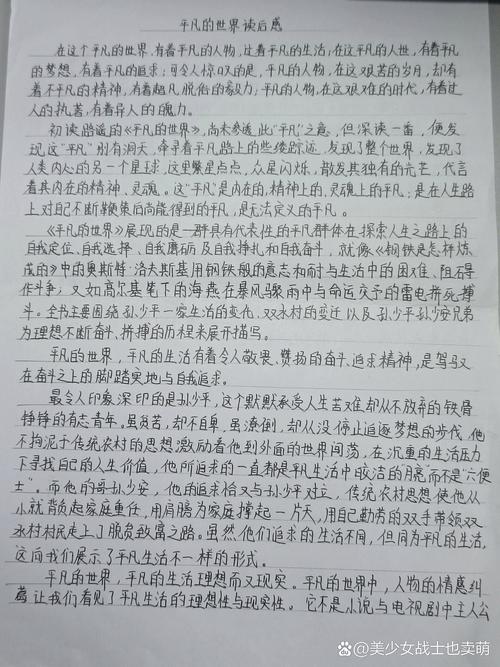 平凡的世界读后感
在这个平凡的世界,有着平凡的人物,过着平凡的生活;在这平凡的人世,有着平凡
的梦想,有着平凡的追求;可令人惊叹的是,平凡的人物,在这艰苦的岁月,却有
着不平凡的精神,有着超凡脱俗的毅力;平凡的人物,在这艰难的时代,有着过
人的执著,有着异人的魄力。
初读路遥的《平凡的世界》,尚未参透此“平凡”之意,但深读一番,便发
现这“平凡”别有洞天,牵寻着平凡路上的些缕踪迹,发现了整个世界,发现了
人类内心的另一个星球,这里繁星点点,众星闪烁,散发其独有的光芒,代言
着其内在的精神、灵魂。这“平凡”是内在的,精神上的,灵魂上的平凡;是在人生路
上对自己不断鞭策后尚能得到的平凡,是无法定义的平凡。
《平凡的世界》展现的是一群具有代表性的平凡群体在探索人生之路上的
自我定位、自我选择、自我磨砺及自我挣扎和自我奋斗,就像《钢铁是怎样炼
成的》中的奥斯特·洛夫斯基用钢铁般的意志和耐与生活中的困难、阻碍
作斗争;又如高尔基笔下的海燕在暴风骤雨中与命运交予的雷电拼死搏
斗。全书主要围绕孙少平一家生活的变化、双水村的变迁以及孙少平孙少安兄弟
为理想不断奋斗、拼搏的历程来展开描写。
平凡的世界,平凡的生活有着令人敬畏、赞扬的奋斗、追求精神,是驾驭
在奋斗之上的脚踏实地与自我追求。
最令人印象深印的是孙少平,这个默默承受人生苦难却从不放弃的铁骨
铮铮的有志青年。虽贫苦,却不自卑,虽潦倒,却从没停止追逐梦想的步伐,他
不拘泥于传统农村的思想激励着他到外面的世界闯荡,在沉重的生活压力
下寻找自己的人生价值,他所追求的一直都是平凡生活中皎洁的月亮”而不是“六便
士”。而他的哥孙少安,他的追求恰又与孙少平对立,传统农村思想使他从
小就背负起家庭重任,用肩膀为家庭撑起一片天,用自己勤劳的双手带领双
水村村民走上了脱贫致富之路。虽然他们追求的生活不同,但同为平凡的生活,
这向我们展示了平凡生活不一样的形式。
平凡的世界,平凡的生活理想而又现实。平凡的世界中,人物的情感纠
葛让我们看见了平凡生活的理想性与现实性。它不是小说与电视剧中主人公
@美少女战士也卖萌